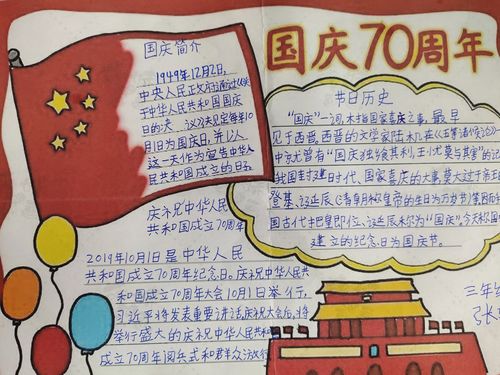 国庆70周年
国庆简介
1949年12月2日,
中央人民政府通过《关
于中华人民共和国国庆
日的决议》,决定每年10
月1日为国庆日,并以
这一天作为宣告中华人
民共和国成立的日子。
节日历史
"国庆"一词,本指国家喜庆之事,最早
见于西晋。西晋的文学家陆机在《五等诸侯论》
中就曾有"国庆独飨其利,主忧莫与其害"的记
我国封建时代、国家喜庆的大事,莫大过于帝王的
登基、诞辰(清朝
国古代把皇帝即位、诞辰称为"国庆"。今天称国
建立的纪念日为国庆节。
庆祝中华人民
共和国成立70周年
2019年10月1日是中华人民
共和国成立70周年纪念日。庆祝中华人民共
和国成立70周年大会10月1日举行,
习近平将发表重要讲话,庆祝大会后,将
举行盛大的庆祝中华人民共和
成立70周年阅兵式和群众游行
三年
张